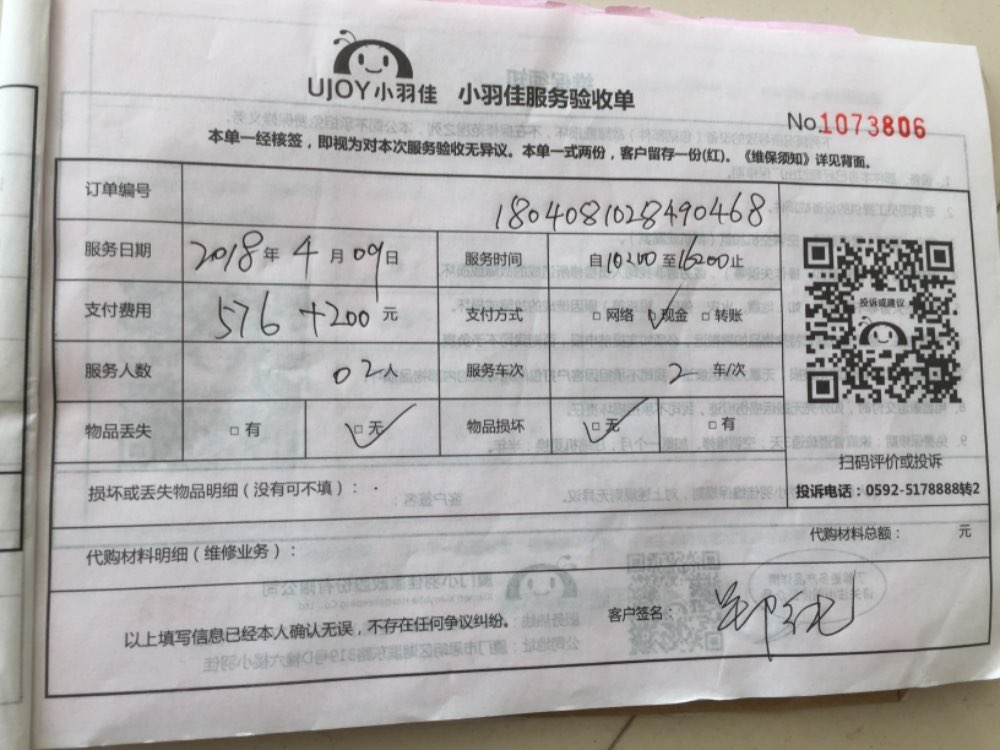 UJOY小羽佳 小羽佳服务验收单
No.1073806
本单一经核签，即视为对本次服务验收无异议。本单一式两份，客户留存一份(红)。《维保须知》详见背面。
订单编号 1804081028490468
服务日期 2018年4月09日 服务时间 自10:00至16:00止
支付费用 576+200元 支付方式 □网络 ☑现金 □转账
投诉或建议
服务人数 02人 服务车次 2车/次
物品丢失 □有 ☑无 物品损坏 ☑无 □有
扫码评价或投诉
损坏或丢失物品明细（没有可不填）：
投诉电话：0592-5178888转2
代购材料明细（维修业务）： 代购材料总额： 元
以上填写信息已经本人确认无误，不存在任何争议纠纷。 客户签名：